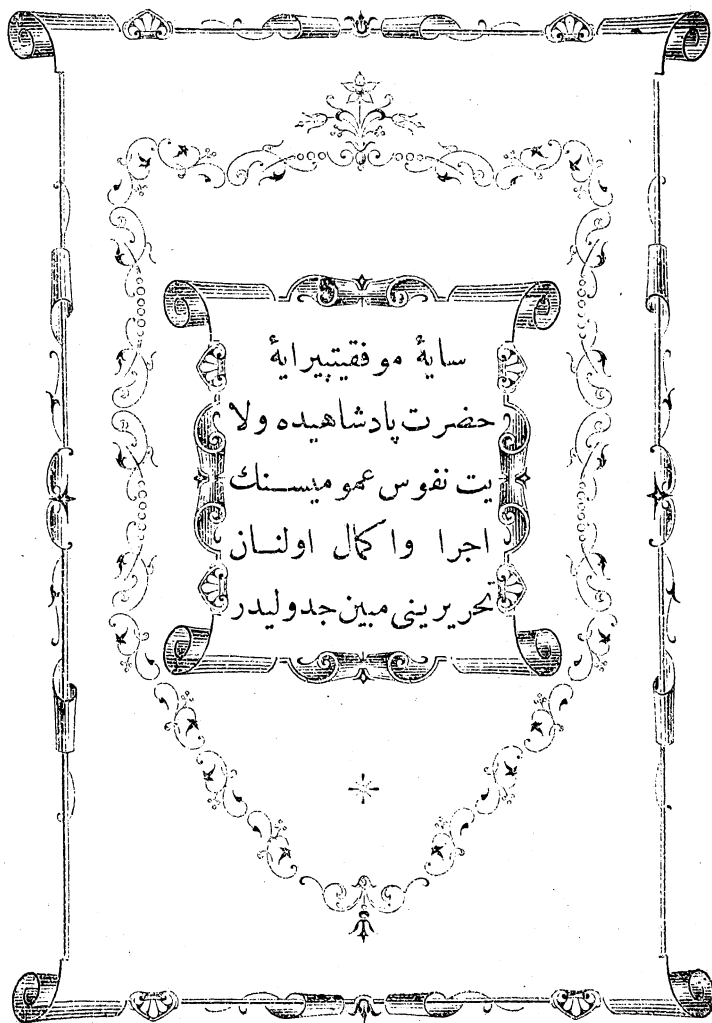 سایهٔ موفقیتپیرایهٔ
حضرت پادشاهیده ولا
یت نفوس عمومیسنك
اجرا واكمال اولنان
تحریرینی مبین جدولیدر